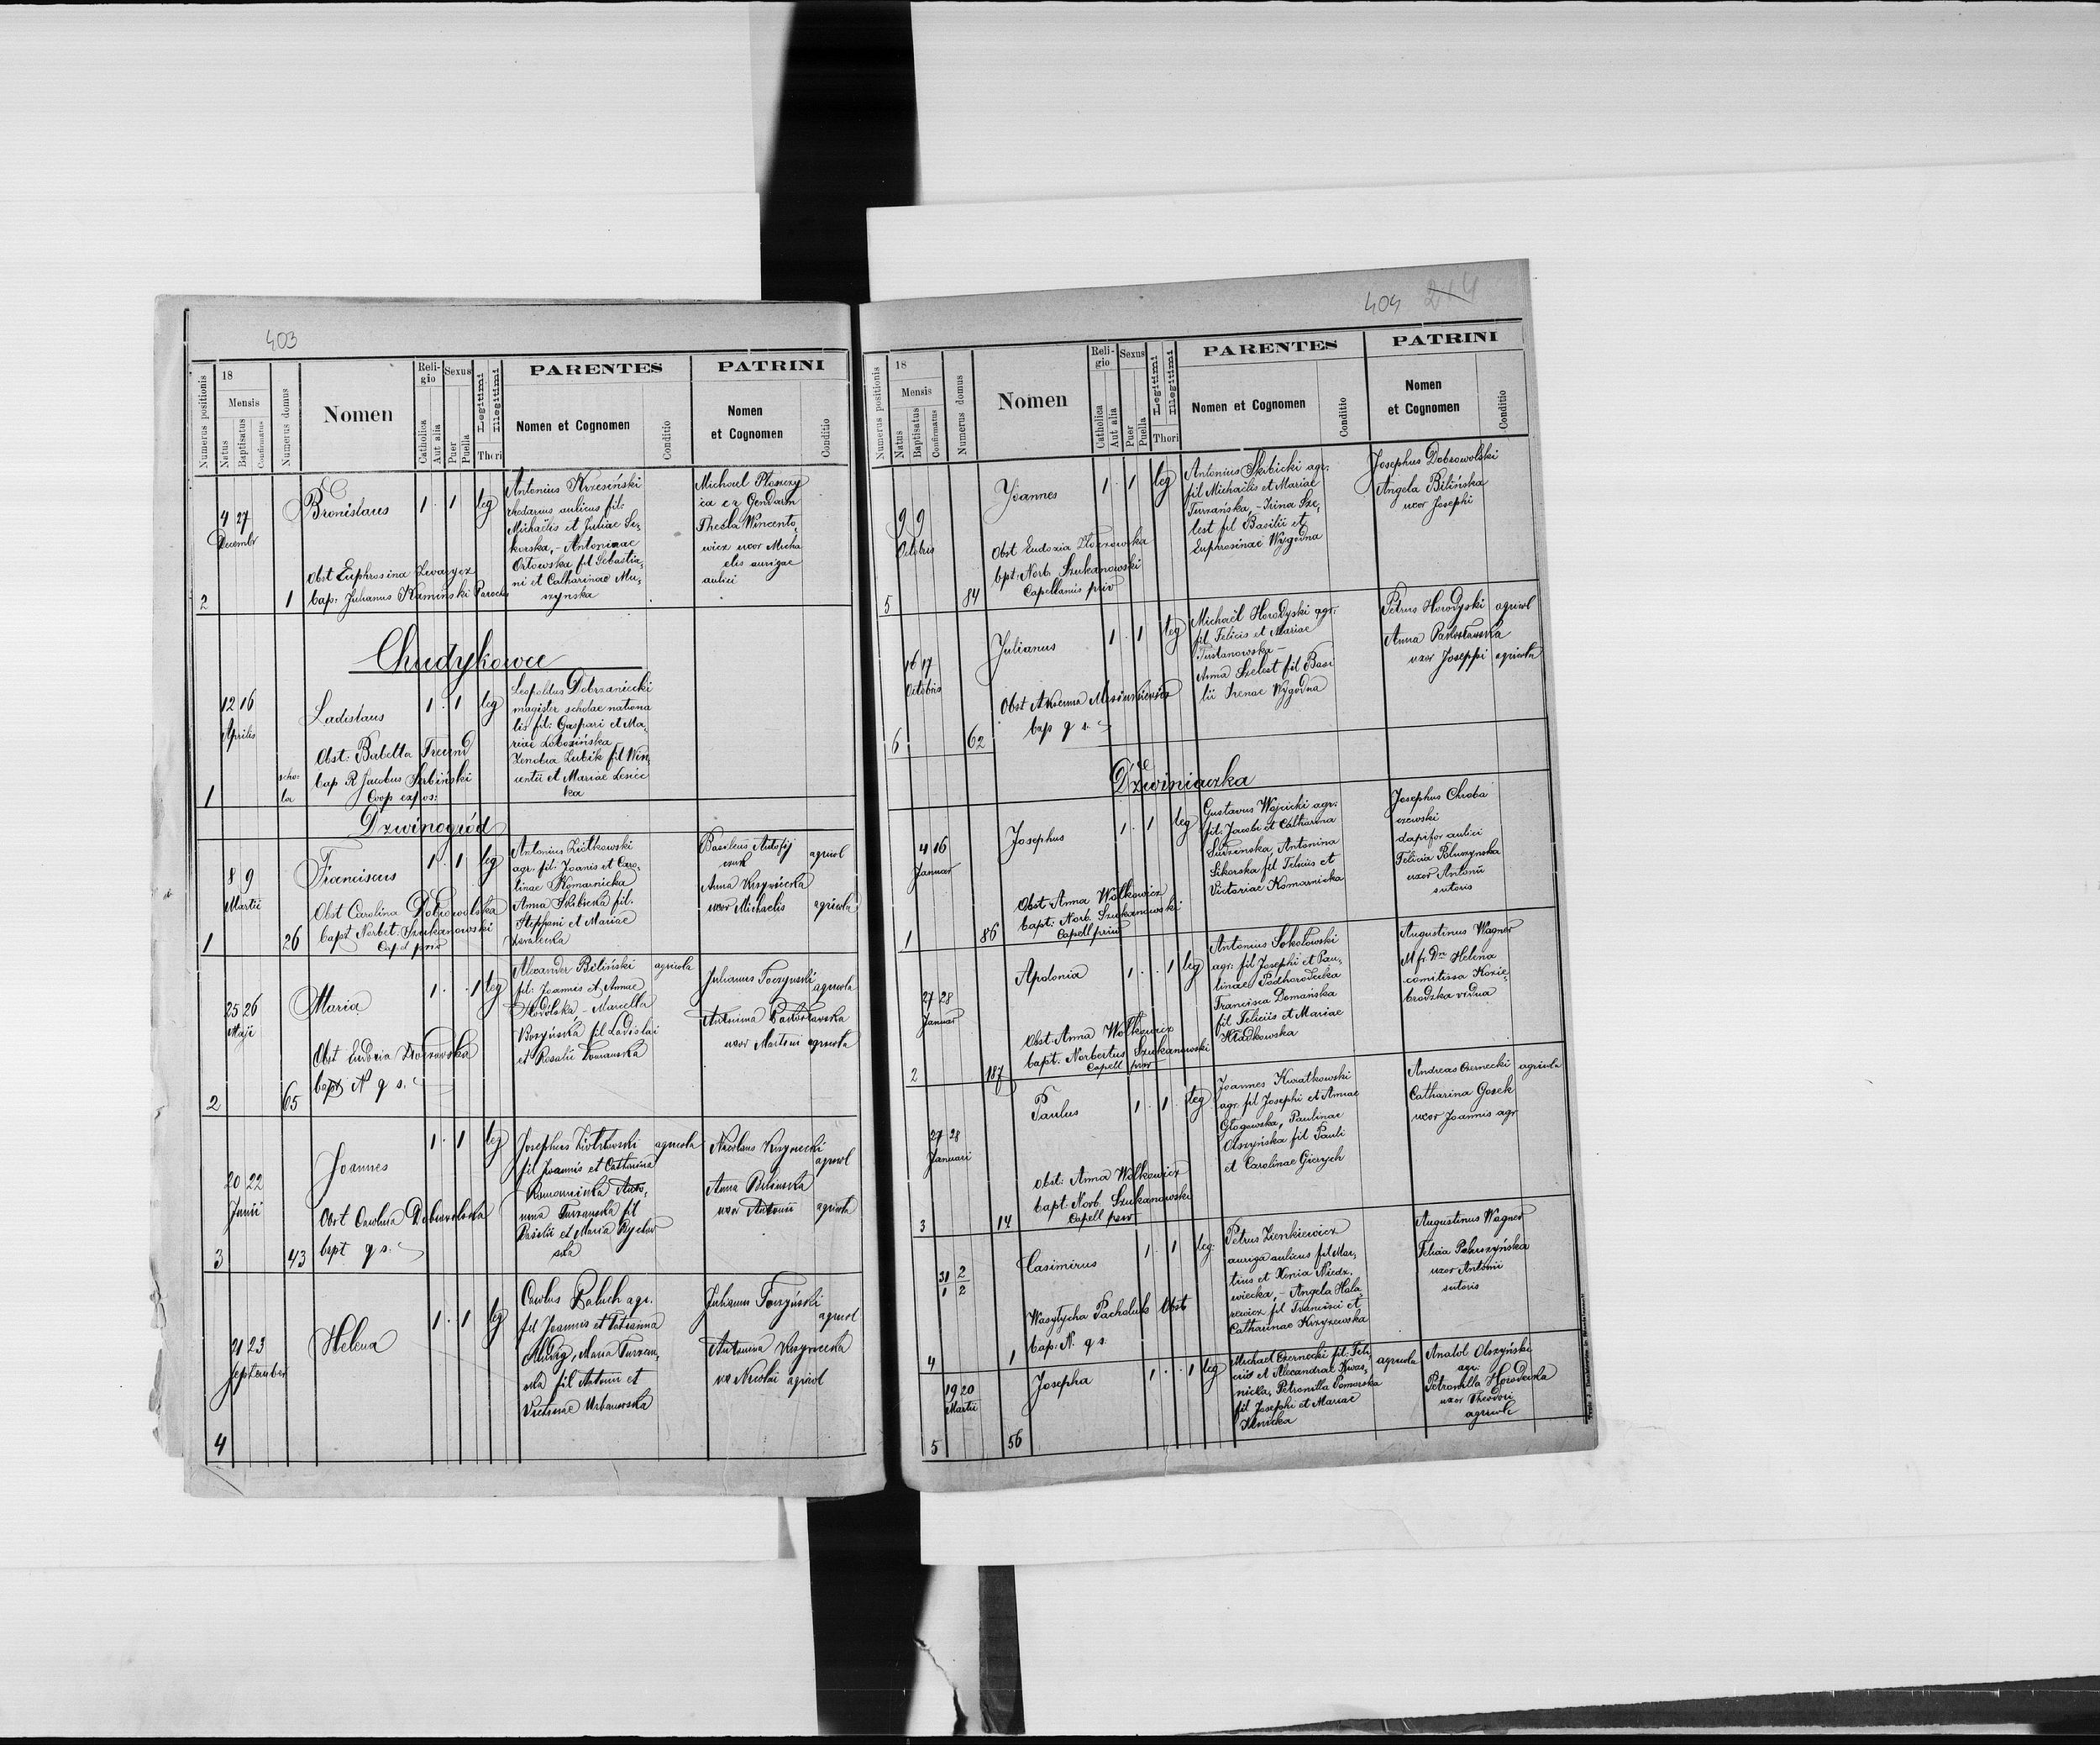 403
Numerus positionis
18
Mensis
Natus
Baptisatus
Confirmatus
Numerus domus
Nomen
Religio
Catholica
Aut alia
Sexus
Puer
Puella
Legitimi
Illegitimi
Thori
PARENTES
Nomen et Cognomen
Conditio
PATRINI
Nomen
et Cognomen
Conditio
2
4 27
Decembr
1
Bronislaus
Obst Euphrosina
bap: Julianus Kamiński Paroch
1 . 1 leg
Antonius Krzesiński
rhedarius aulicus fil:
Michaëlis et Juliae Si-
korska, - Antoninae
Orłowska fil Sebastia-
ni et Catharinae Mu-
szynska
Michael
ica ex Gendarm
Thecla Wincento-
wicz uxor Micha
elis aurigae
aulici
Chudykowce
1
12 16
Aprilis
scho-
la
Ladislaus
Obst: Babetta Freund
bap R Jacobus Serbiński
Coop expos:
1 . 1 leg
Leopoldus Dobrzaniecki
magister scholae nationa
lis fil: Gaspari et Ma-
riae Łobozińska
Zenobia Zubik fil Win-
centii et Mariae Lesiec
ka
Dzwinogród
1
8 9
Martii
26
Franciscus
Obst Carolina Dobrowolska
bapt Norbet. Szukanowski
Capel priv
1 . 1 leg
Antonius Ziółkowski
agr. fil: Joanis et Caro-
linae Komarnicka
Anna Skibicka fil.
Stephani et Mariae
Basileus
czuk agricol
Anna Krzywiecka
uxor Michaelis agricola
2
25 26
Maji
65
Maria
Obst Eudoxia Złoczowska
bapt N q s.
1 . . 1 leg
Alexander Biliński agricola
fil: Joannis et Annae
Hodolska - Marcella
fil Ladislai
et Rosalie
Julianus Toczyński
agricola
Antonina Pawłosławska
uxor Martini agricola
3
20 22
Junii
43
Joannes
Obst Carolina Dobrowolska
bapt q s.
1 . 1 leg
Josephus Ziółkowski agricola
fil Joannis et Catharina
Komarnicka Anto-
nina Turzańska fil
Basilii et Maria
ska
Nicolaus Krzywiecki
agricol
Anna Bilińska
uxor Antonii agricola
4
21 23
September
Helena
1 . 1 leg
Carolus Baluch agr.
fil Joannis et
Maria Turzan-
ska fil Antonii et
Victoriae Urbanowska
Julianus Toczyński
agricol
Antonina Krzywiecka
ux Nicolai agricol
404 214
Numerus positionis
18
Mensis
Natus
Baptisatus
Confirmatus
Numerus domus
Nomen
Religio
Catholica
Aut alia
Sexus
Puer
Puella
Legitimi
Illegitimi
Thori
PARENTES
Nomen et Cognomen
Conditio
PATRINI
Nomen
et Cognomen
Conditio
5
9 9
Octobris
84
Joannes
Obst Eudoxia Złoczowska
bpt: Norb. Szukanowski
Capellanus priv
1 . 1 leg
Antonius Skibicki agr:
fil Michaëlis et Mariae
Turzańska, - Irina Sze-
lest fil Basilii et
Euphrosinae Wygodna
Josephus Dobrowolski
Angela Bilińska
uxor Josephi
6
16 17
Octobris
62
Julianus
Obst Aksenia
bap q s.
1 . 1 leg
Michaël Horodyski agr:
fil Felicis et Mariae
Tustanowska -
Anna Szelest fil Basi
lii Irenae Wygodna
Petrus Horodyski agricol
Anna Pawłosławska
uxor Joseppi agricola
Dźwiniaczka
1
4 16
Januar
86
Josephus
Obst Anna Wolkowicz
bapt: Norb. Szukanowski
Capell priv
1 . 1 leg
Gustavus Wojcicki agr:
fil: Jacobi et Catharina
Antonina
Sikorska fil Felicis et
Victoriae Komarnicka
Josephus Chroba
czewski
dapifer aulici
Felicia Poluszynska
uxor Antonii
sutoris
2
27 28
Januar
187
Apolonia
Obst Anna Wolkowicz
bapt. Norbertus Szukanowski
Capell priv
1 . . 1 leg
Antonius Sokołowski
agr: fil Josephi et Pau-
linae Podhorodecka
Francisca Domańska
fil Feliciis et Mariae
Kładkowska
Augustinus Wagner
Mfr Dna Helena
comitissa Kozie-
brodzka vidua
3
27 28
Januari
14
Paulus
obst: Anna Wolkowicz
bapt: Norb. Szukanowski
Capell priv
1 . 1 . leg
Joannes Kwiatkowski
agr. fil Josephi et Annae
Głogowska, Paulinae
Olszyńska fil Pauli
et Carolinae Gierych
Andreas Czernecki agricola
Catharina Gosek
uxor Joannis agr
4
31 2
1 2
1
Casimirus
Wasylycha Pacholuk Obst
bap: N. q s
1 . 1 leg:
Petrus Zienkiewicz
auriga aulicus fil Mar-
tius et Xenia Niedz-
wiecka, - Angela Hala-
rewicz fil Francisci et
Catharinae Krzyzewska
Augustinus Wagner
Felicia Poluszyńska
uxor Antonii
sutoris
5
19 20
Martii
56
Josepha
1 . . 1 leg
Michael Czernecki fil: Feli- agricola
ciis et Alexandrae Kwas-
nicka, Petronilla Pomorska
fil Josephi et Mariae
Ilnicka
Anatol Olszyński
agr:
Petronilla Horodecka
uxor Theodori
agricole